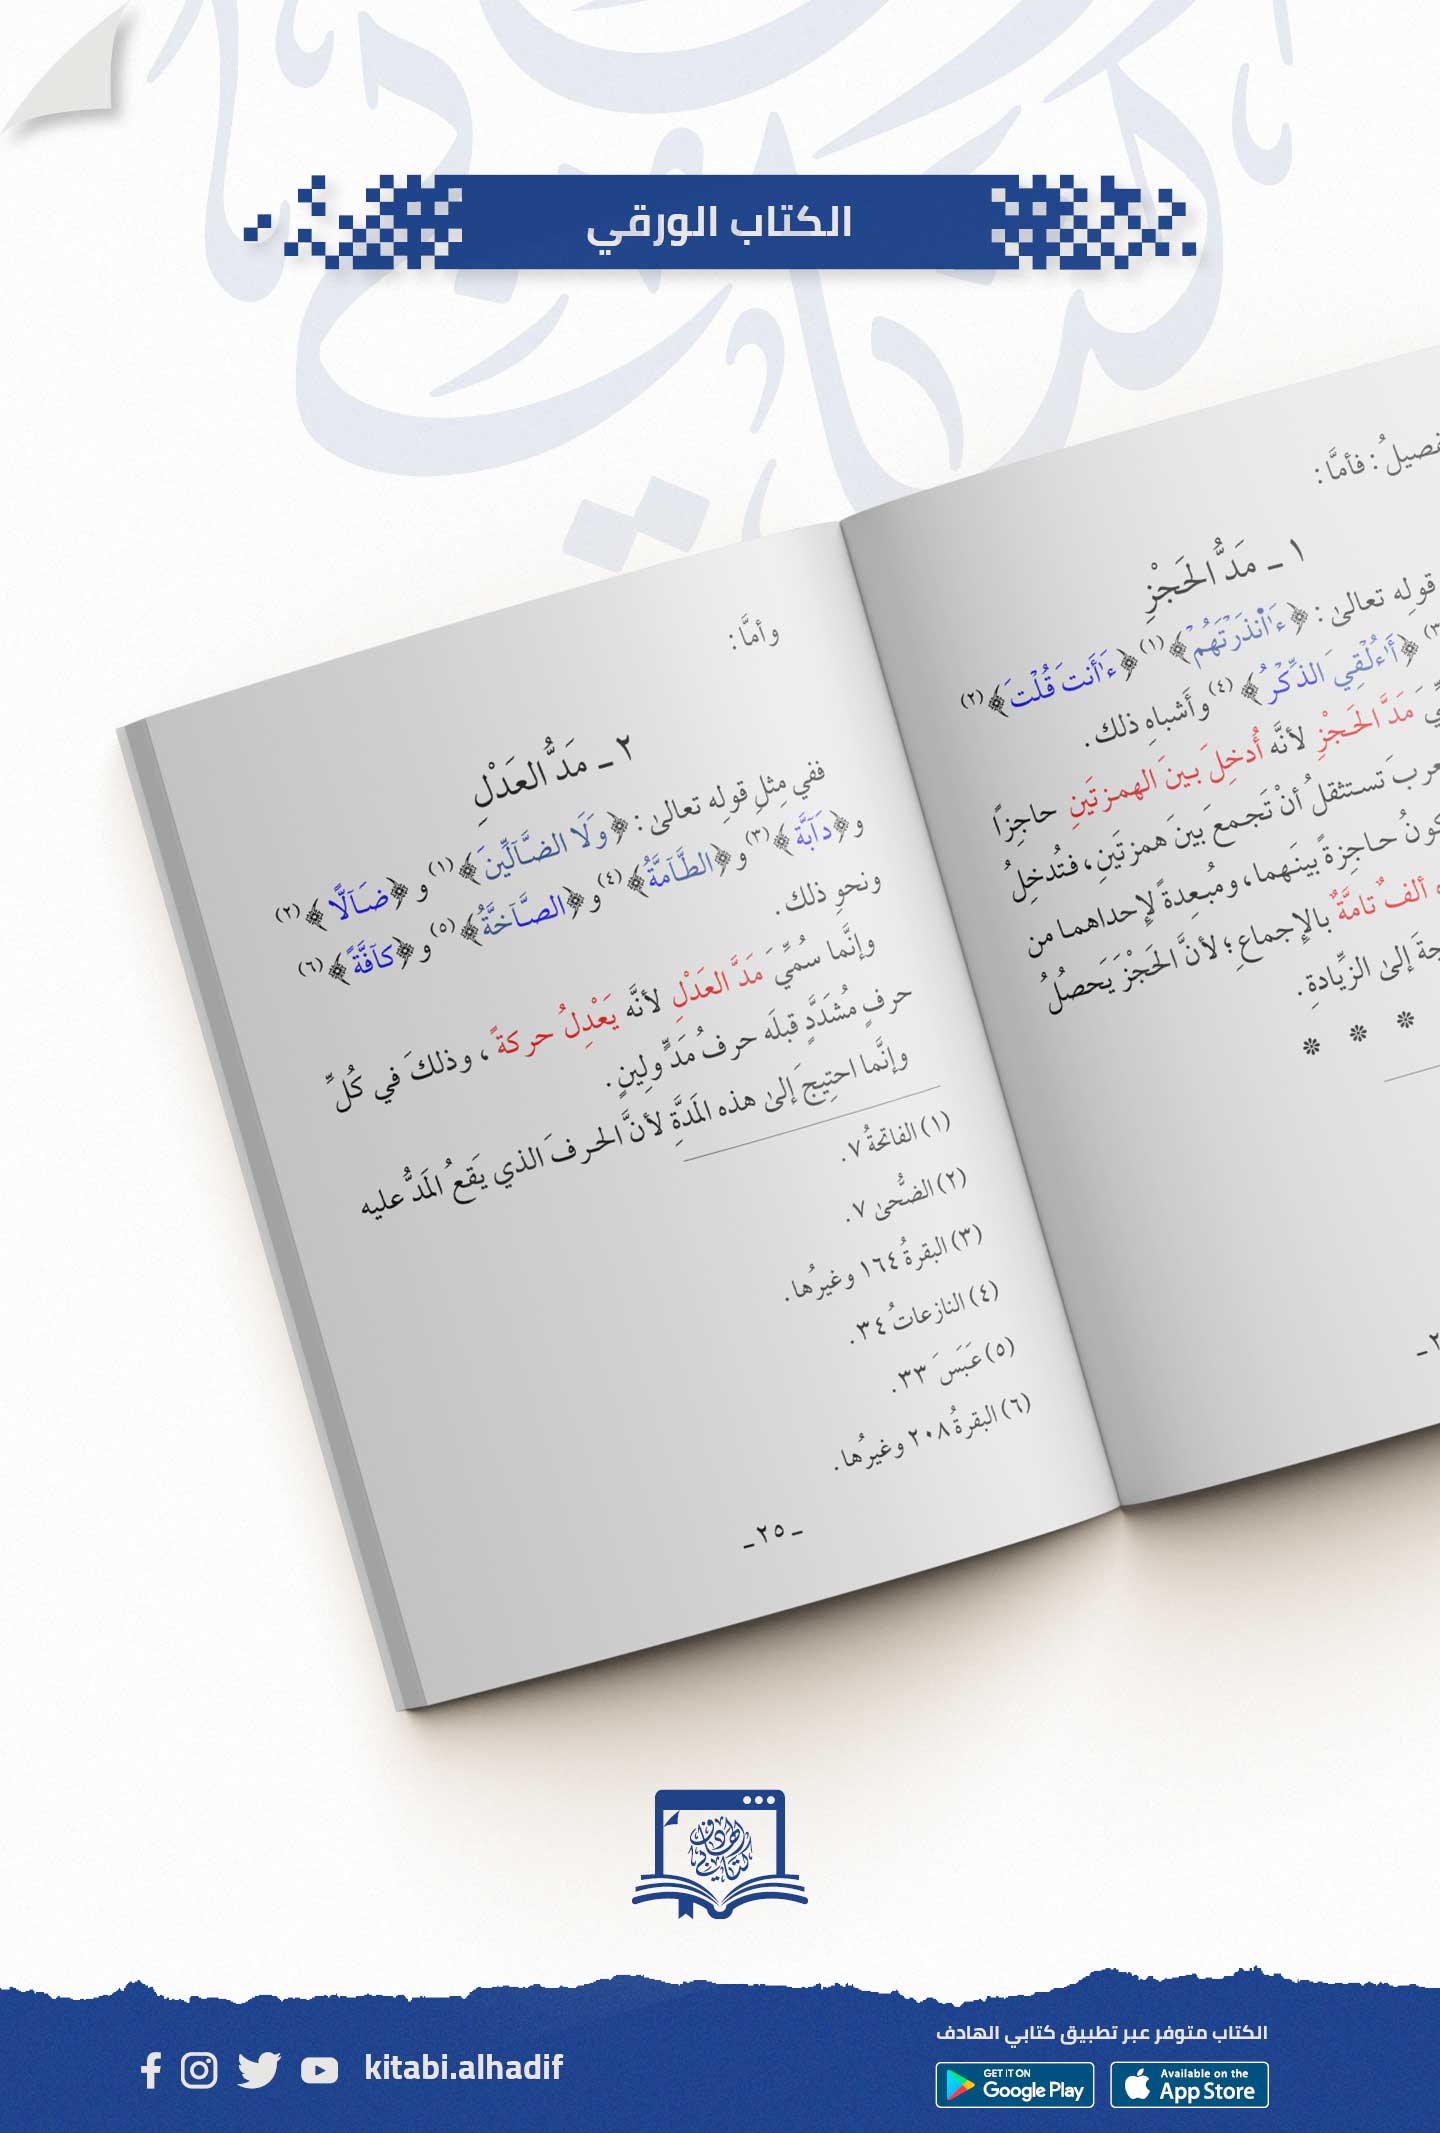 الكتاب الورقي
فصيلُ: فأمَّا:
١ ـ مَدُّ الحَجْزِ
قولِه تعالىٰ: ﴿ءَاْنذَرْتَهُمْ﴾(١) ﴿ءَاْأَنتَ قُلْتَ﴾(٢)
(٣) ﴿أَاْءُلْقِيَ الذِّكْرُ﴾(٤) وأَشباهِ ذلك.
مَدَّ الحَجْزِ لأنَّه أُدخِلَ بينَ الهمزتَينِ حاجِزًا
تستثقلُ أنْ تَجمعَ بينَ همزتَينِ، فتُدخِلُ
حاجِزةً بينَهما، ومُبعِدةً لإحداهما من
ألفٌ تامَّةٌ بالإجماعِ؛ لأنَّ الحَجْزَ يَحصُلُ
إلىٰ الزِّيادةِ.
* * *
وأمَّا:
٢ ـ مَدُّ العَدْلِ
ففي مِثلِ قولِه تعالىٰ: ﴿وَلَا الضَّآلِّينَ﴾(١) و﴿ضَآلًّا﴾(٢)
و﴿دَآبَّة﴾(٣) و﴿الطَّآمَّةُ﴾(٤) و﴿الصَّآخَّةُ﴾(٥) و﴿كآفَّةً﴾(٦)
ونحوِ ذلك.
وإنَّما سُمِّيَ مَدَّ العَدْلِ لأنَّه يَعْدِلُ حركةً، وذلكَ في كُلِّ
حرفٍ مُشدَّدٍ قبلَه حرفُ مَدٍّ ولِينٍ.
وإنَّما احتِيجَ إلىٰ هذه المَدَّةِ لأنَّ الحرفَ الذي يَقعُ المَدُّ عليه
(١) الفاتحةُ ٧.
(٢) الضُّحىٰ ٧.
(٣) البقرةُ ١٦٤ وغيرُها.
(٤) النازعاتُ ٣٤.
(٥) عَبَسَ ٣٣.
(٦) البقرةُ ٢٠٨ وغيرُها.
ـ ٢٥ ـ
كتابي الهادف
الكتاب متوفر عبر تطبيق كتابي الهادف
kitabi.alhadif
GET IT ON
Google Play
Available on the
App Store